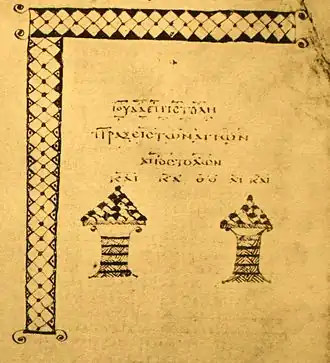 ΙΟΥΔΑ ΕΠΙΣΤΟΛΗ
ΠΡΑΞΕΙΣ ΤΩΝ ΑΓΙΩΝ
ΑΠΟΣΤΟΛΩΝ